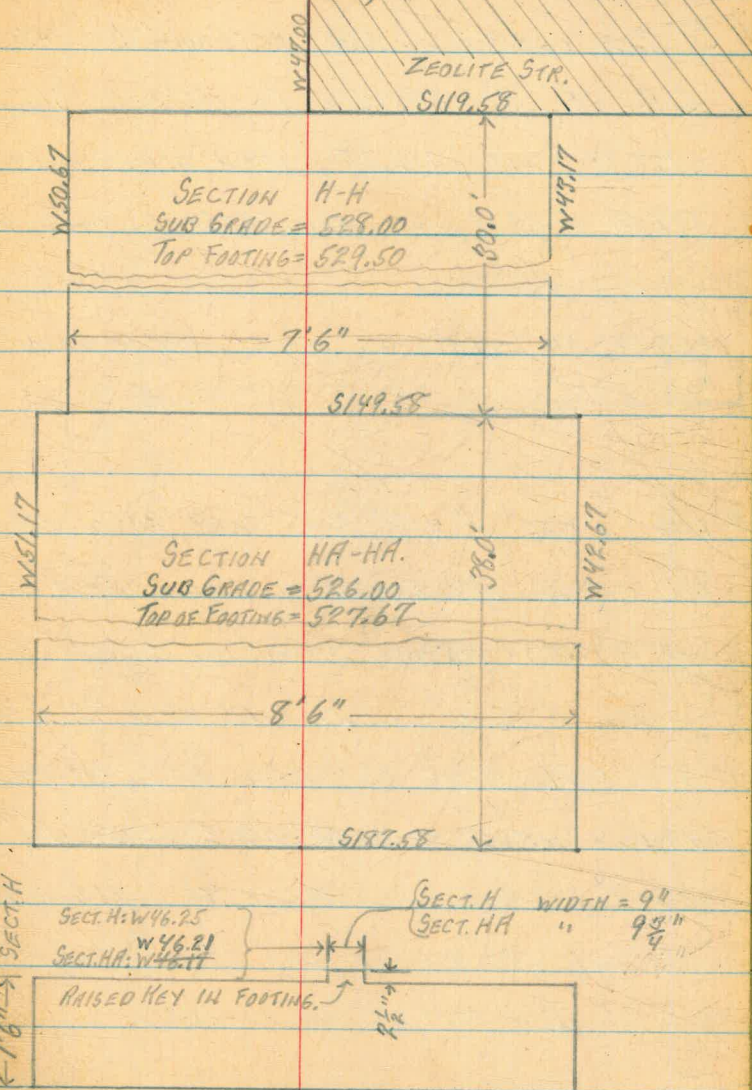 W47.00
ZEOLITE STR.
S119.58
W50.67
W43.17
SECTION H-H
SUB GRADE = 528.00
TOP FOOTING = 529.50
30.0'
7'6"
S149.58
W51.17
W42.67
SECTION HA-HA.
SUB GRADE = 526.00
TOP OF FOOTING = 527.67
38.0'
8'6"
S187.58
SECT. H
1'6"
SECT. H: W46.25
W46.21
SECT. HA: W46.17
SECT. H WIDTH = 9"
SECT. HA " 9 3/4"
RAISED KEY IN FOOTING.
2 1/2"